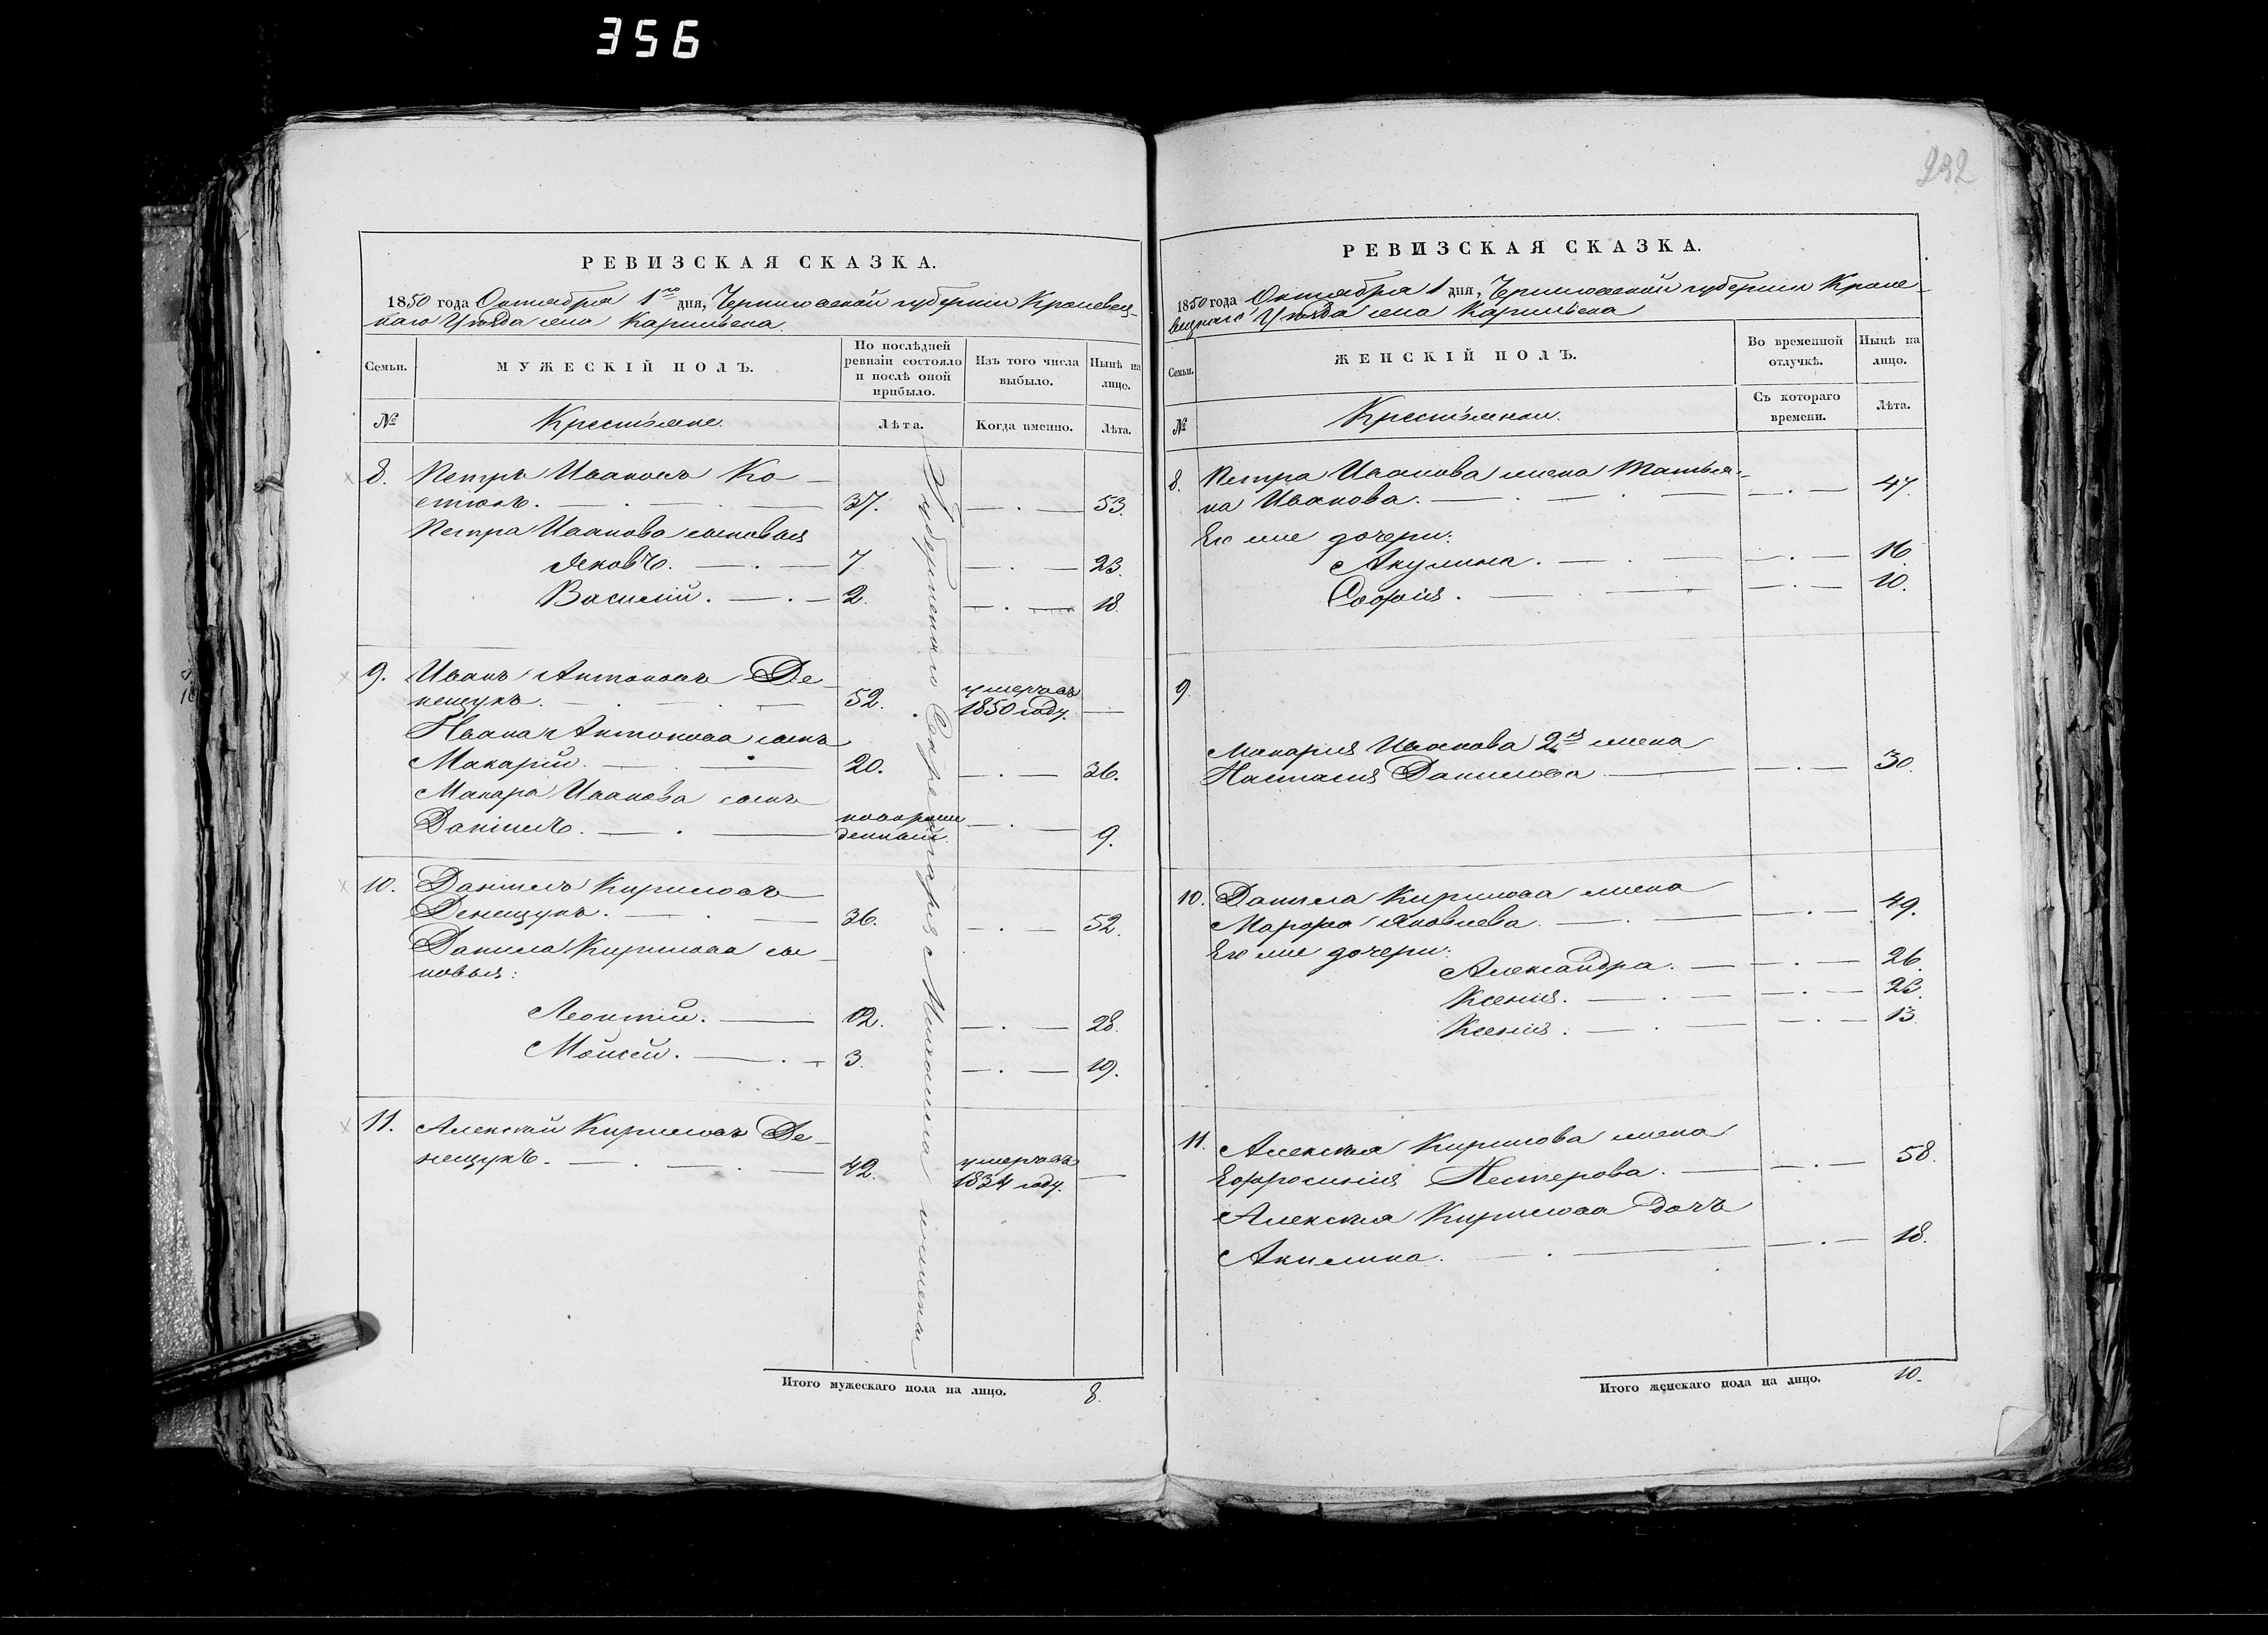 356
292
РЕВИЗСКАЯ СКАЗКА.
1850 года Октября 1го дня, Черниговской губернии Кролевец-
каго Уѣзда села
Семьи.
МУЖЕСКІЙ ПОЛЪ.
По послѣдней ревизіи состояло и послѣ оной прибыло.
Изъ того числа выбыло.
Нынѣ на лицо.
№
Крестьяне.
Лѣта.
Когда именно.
Лѣта.
8. Петръ Ивановъ Ко-
стюкъ. 37. 53.
Петра Иванова сыновья
Яковъ. 7. 23.
Василий. 2. 18.
9. Иванъ Антоновъ Де-
нещукъ. 52. умерь въ 1850 году.
Ивана Антонова сынъ
Макарій. 20. 36.
Макара Иванова сынъ
Данiилъ. новорожденный 9.
10. Данiилъ Кириловъ
Денещукъ. 36. 52.
Данила Кирилова сы-
новья:
Леонтій. 12. 28.
Моисей. 3. 19.
11. Алексѣй Кириловъ Де-
нещукъ. 42. умерь въ 1834 году.
Губернскаго Секретаря
Итого мужескаго пола на лицо. 8.
РЕВИЗСКАЯ СКАЗКА.
1850 года Октября 1 дня, Черниговской губернии Кроле-
вецкаго Уѣзда села
Семьи.
ЖЕНСКІЙ ПОЛЪ.
Во временной отлучкѣ.
Нынѣ на лицо.
№
Крестьянки.
Съ котораго времени.
Лѣта.
8. Петра Иванова жена Татья-
на Иванова. 47.
Его же дочери:
Акулина. 16.
Софія. 10.
9
Макария Иванова 2я жена
Настасия Данилова 30.
10. Данила Кирилова жена
Марфа Яковлева. 49.
Его же дочери:
Александра. 26.
Ксенія. 23.
Ксенія. 13.
11. Алексѣя Кирилова жена
Ефросинія Нестерова. 58.
Алексѣя Кирилова дочь
Акилина. 18.
Итого женскаго пола на лицо. 10.